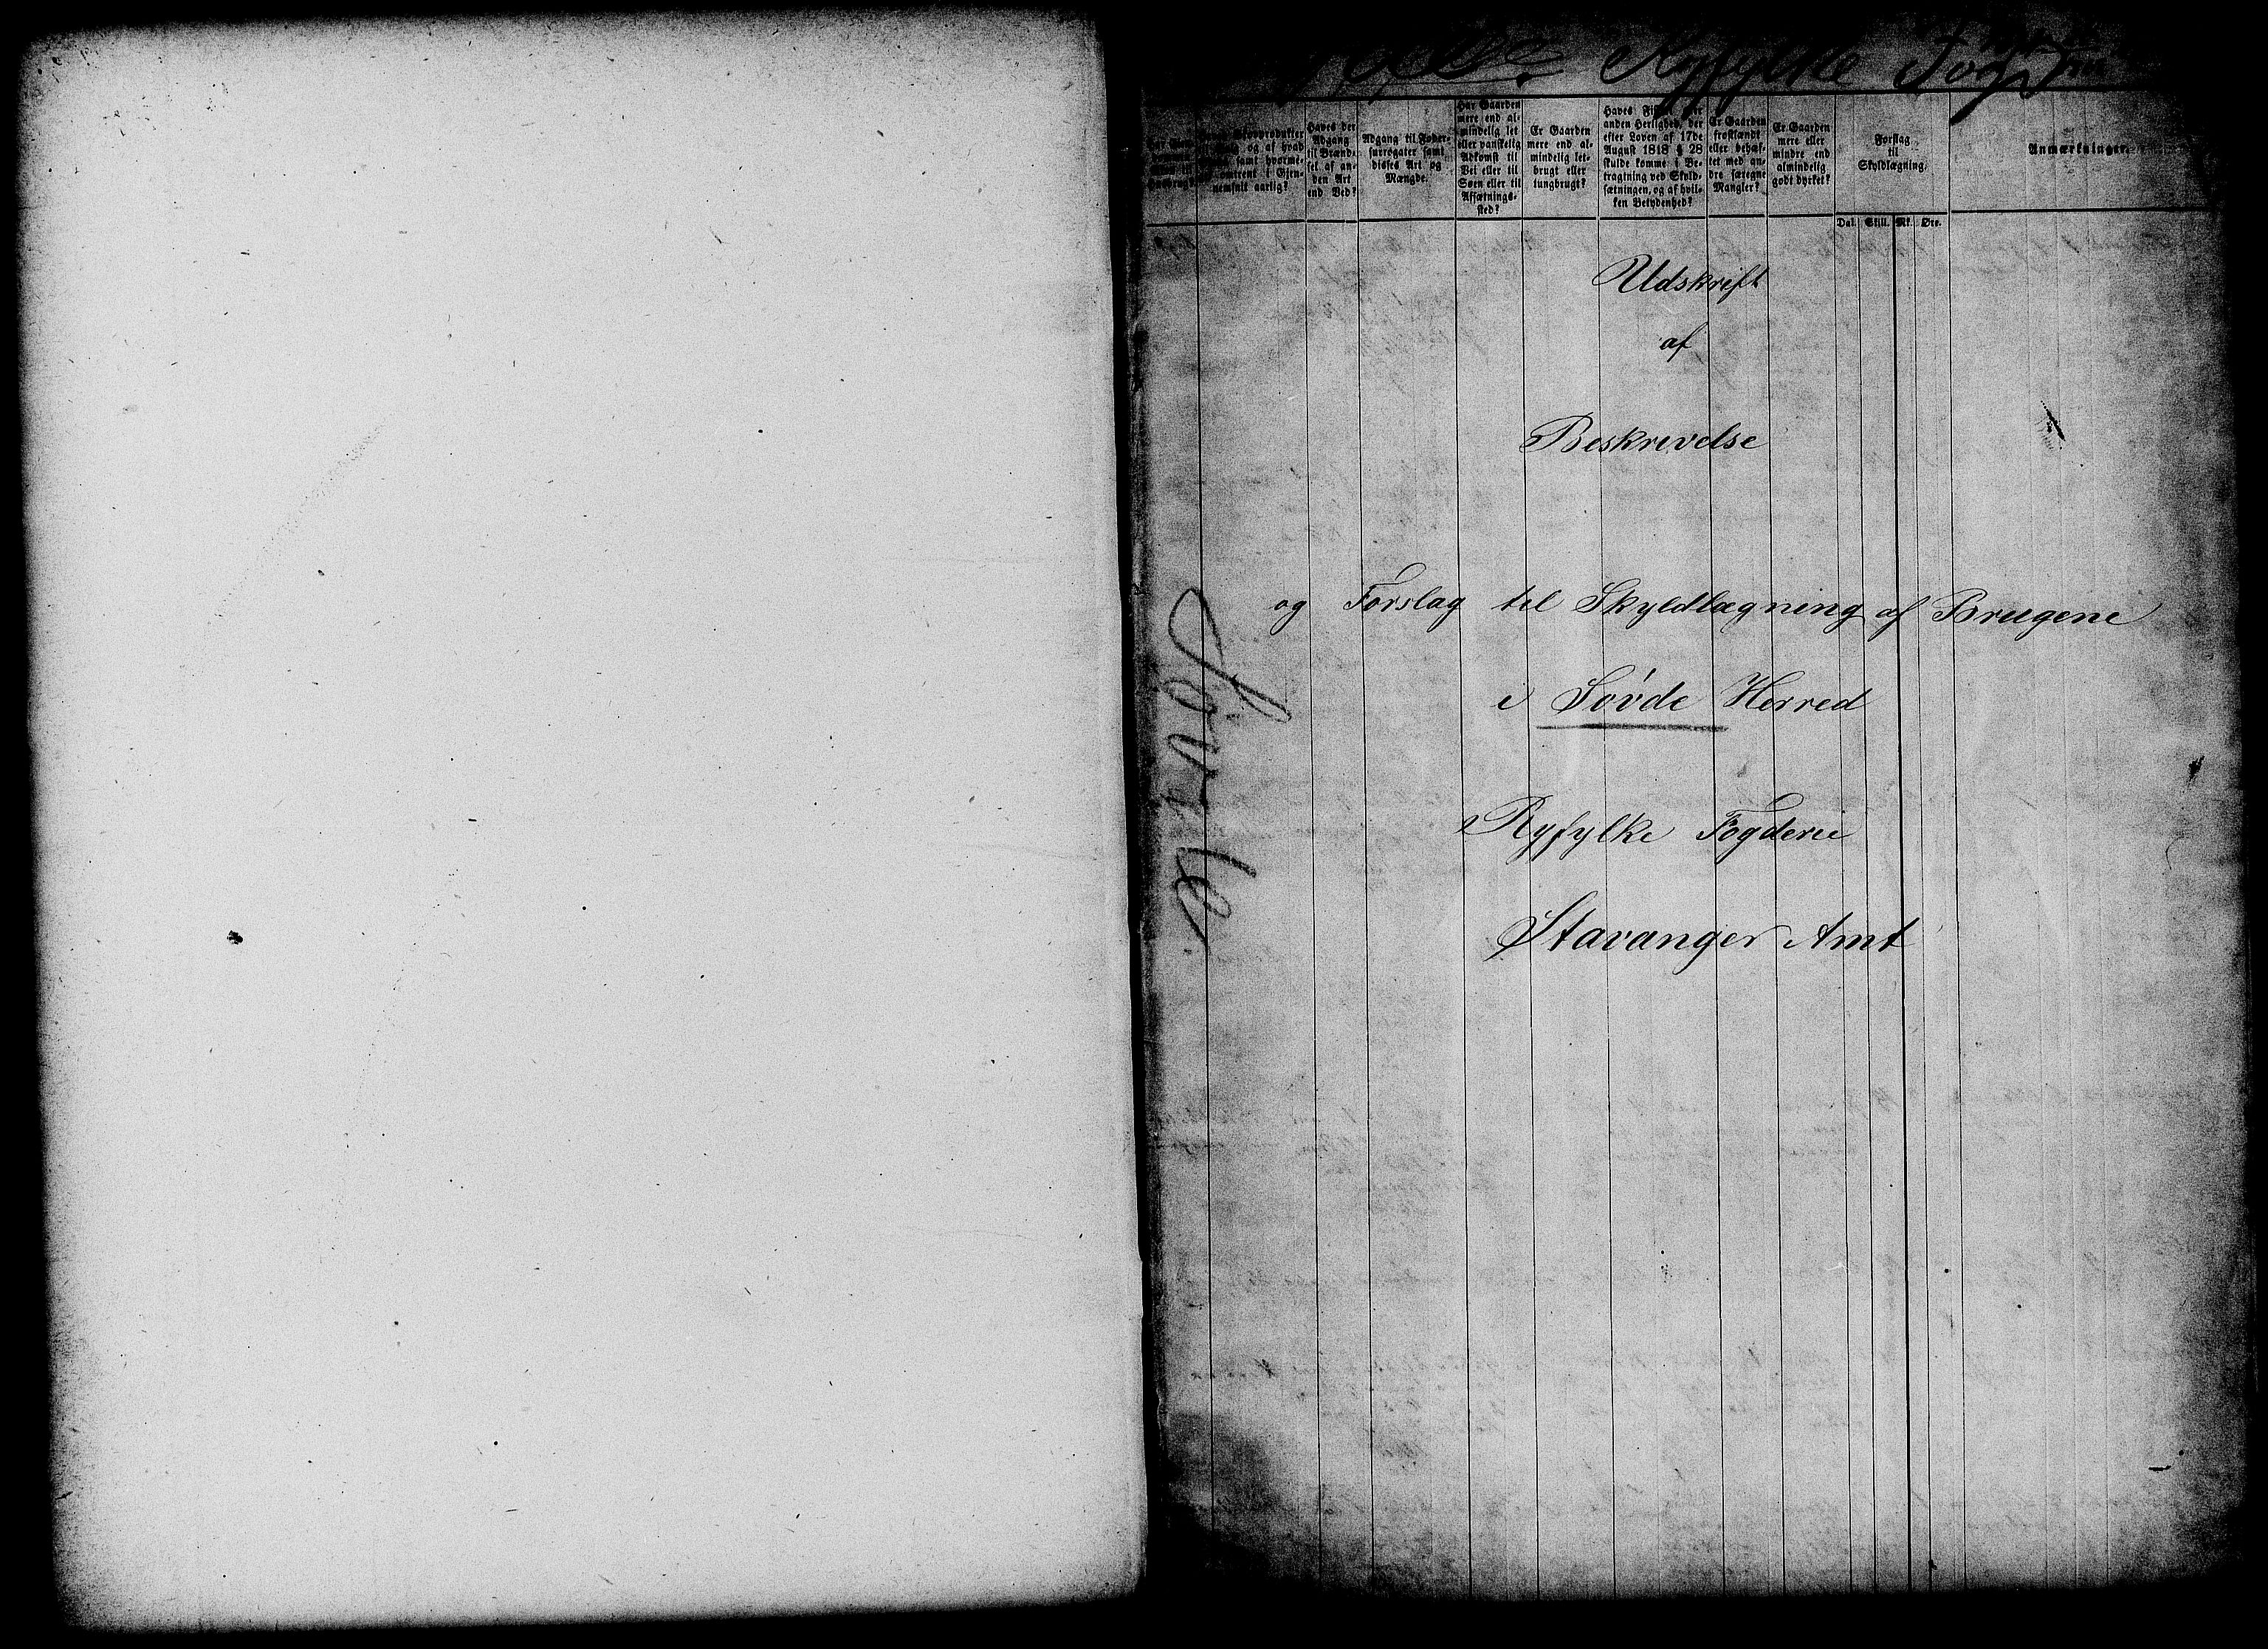 Ryfylke Fogd
Skovprodukter
og af hvad
samt hvorme-
omtrent i Gjen-
nemsnit aarlig?
Haves der
Adgang
til Brænd-
sel af an-
den Art
end Ved?
Adgang til Foder-
surrogater samt
disses Art og
Mængde.
Har Gaarden
mere end al-
mindelig let
eller vanskelig
Adkomst til
Vei eller til
Søen eller til
Afsætnings-
sted?
Er Gaarden
mere end al-
mindelig let-
brugt eller
tungbrugt?
Haves
anden Herlighed, der
efter Loven af 17de
August 1818 § 28
skulde komme i Be-
tragtning ved Skyld-
sætningen, og af hvil-
ken Betydenhed?
Er Gaarden
frostlændt
eller behæf-
tet med an-
dre særegne
Mangler?
Er Gaarden
mere eller
mindre end
almindelig
godt dyrket?
Forslag
til
Skyldlægning.
Anmærkninger.
Dal. Skill. Mk. Øre.
Udskrift
af
Beskrivelse
og Forslag til Skyldlægning af Brugene
i Søvde Herred
Ryfylke Fogderie
Stavanger Amt
Søvde